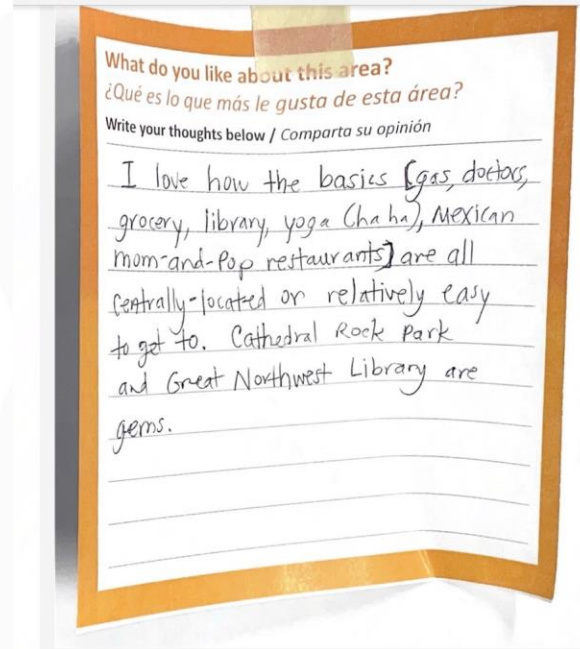 What do you like about this area?
¿Qué es lo que más le gusta de esta área?
Write your thoughts below / Comparta su opinión
I love how the basics [gas, doctors,
grocery, library, yoga (haha), Mexican
mom-and-Pop restaurants] are all
centrally-located or relatively easy
to get to. Cathedral Rock Park
and Great Northwest Library are
gems.